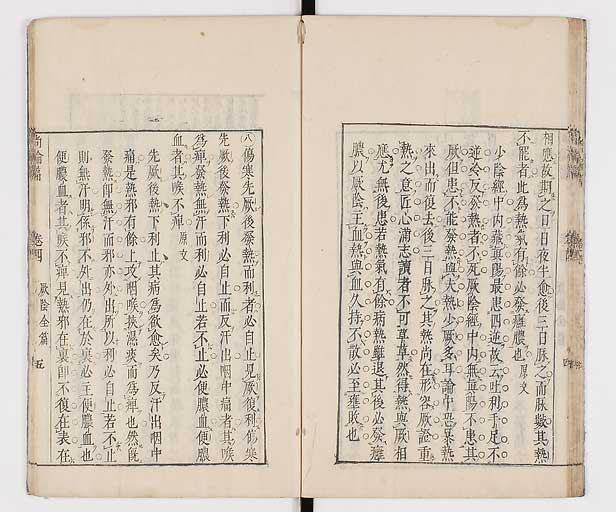 相應故期之旦日夜半愈後三日脉之而脉數其熱
不罷者此為熱氣有餘必發癰膿也原文
少陰經中內藏真陽最患四逆故云吐利手足不
逆冷反發熱者不死厥陰經中內無真陽不患其
厥但患不能發熱與夫熱少厥多耳論中恐暴熱
來出而復去後三日脉之其熱尚在形容厥證重
熱之意匠心滿志讀者不可草草然得熱與厥相
應尤無後患若熱氣有餘病熱雖退其後必發癰
膿以厥陰主血熱與血久持不散必至壅敗也
八傷寒先厥後發熱而利者必自止見厥復利傷寒
先厥後發熱下利必自止而反汗出咽中痛者其喉
為痺發熱無汗而利必自止若不止必便膿血便膿
血者其喉不痺原文
先厥後熱下利止其病為欲愈矣乃反汗出咽中
痛是熱邪有餘上攻咽喉挾濕痰而為痺也然既
發熱即無汗而邪亦外出所以利必自止若不止
則無汗明係邪不外出仍在於裏必主便膿血也
便膿血者其喉不痺見熱邪在裏即不復在表在
尚論編
卷四
厥陰全篇
五